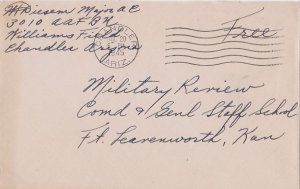 Major A C
3010 AAF BU
Williams Field
Chandler Arizona
1945
ARIZ.
Free
Military Review
Comd & Genl Staff School
Ft. Leavenworth, Kan